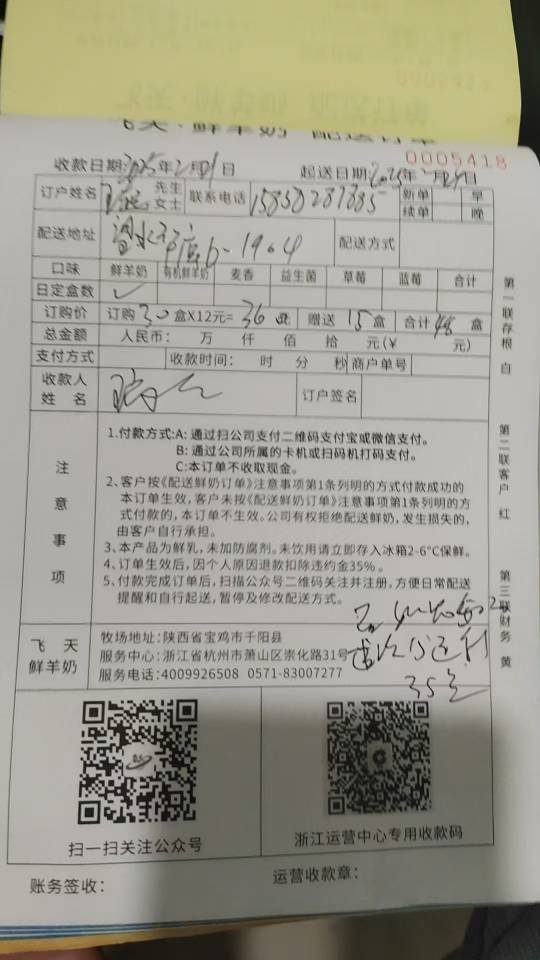 0005418
飞天·鲜羊奶 配送订单
收款日期:2025年2月21日 起送日期:2025年 月 日
订户姓名 先生 女士 联系电话 新单 续单 早 晚
配送地址 6-1904 配送方式
口味 鲜羊奶 有机鲜羊奶 麦香 益生菌 草莓 蓝莓 合计
日定盒数 ✓
订购价 订购30盒X12元=36 赠送15盒 合计 盒
总金额 人民币: 万 仟 佰 拾 元(¥ 元)
支付方式 收款时间: 时 分 秒 商户单号
收款人姓名 订户签名
第一联存根 白
第二联客户 红
第三联财务 黄
注意事项
1.付款方式:A: 通过扫公司支付二维码支付宝或微信支付。
B: 通过公司所属的卡机或扫码机打码支付。
C:本订单不收取现金。
2、客户按《配送鲜奶订单》注意事项第1条列明的方式付款成功的
本订单生效，客户未按《配送鲜奶订单》注意事项第1条列明的方
式付款的，本订单不生效。公司有权拒绝配送鲜奶，发生损失的，
由客户自行承担。
3、本产品为鲜乳，未加防腐剂。未饮用请立即存入冰箱2-6°C保鲜。
4、订单生效后，因个人原因退款扣除违约金35%。
5、付款完成订单后，扫描公众号二维码关注并注册，方便日常配送
提醒和自行起送，暂停及修改配送方式。
飞天鲜羊奶
牧场地址:陕西省宝鸡市千阳县
服务中心:浙江省杭州市萧山区崇化路31号
服务电话:4009926508 0571-83007277
扫一扫关注公众号
浙江运营中心专用收款码
账务签收: 运营收款章: